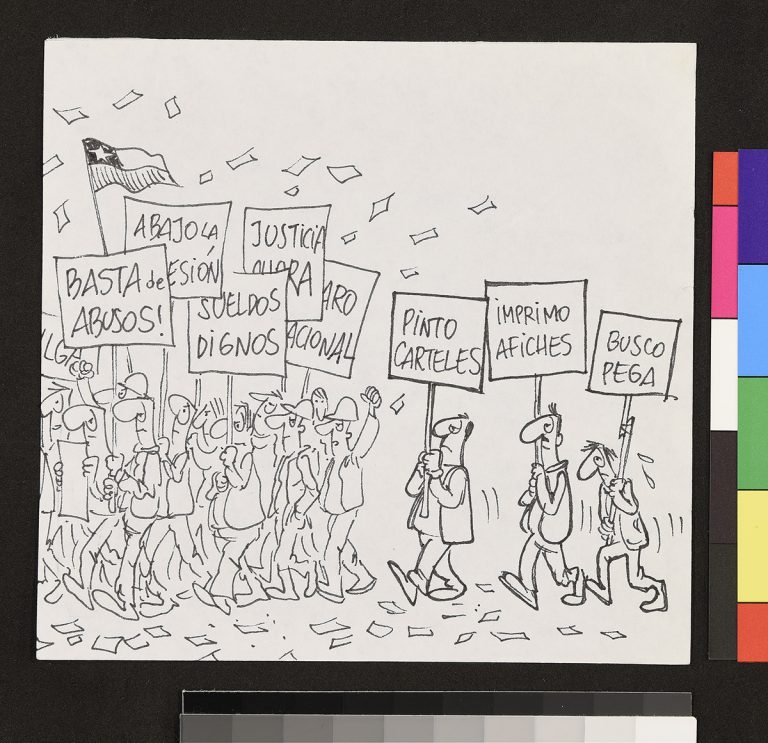 ABAJO LA
ESIÓN
JUSTICIA
AHORA
BASTA de
ABUSOS!
SUELDOS
DIGNOS
ARO
ACIONAL
LGA
PINTO
CARTELES
iMPRIMO
AFICHES
BUSCO
PEGA